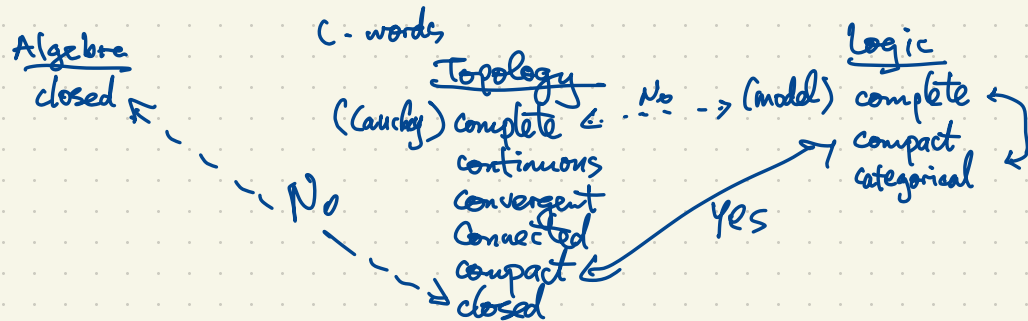 C-words
Algebra
closed
Topology
(Cauchy) complete
continuous
convergent
Connected
compact
closed
Logic
(model) complete
compact
categorical
No
No
Yes